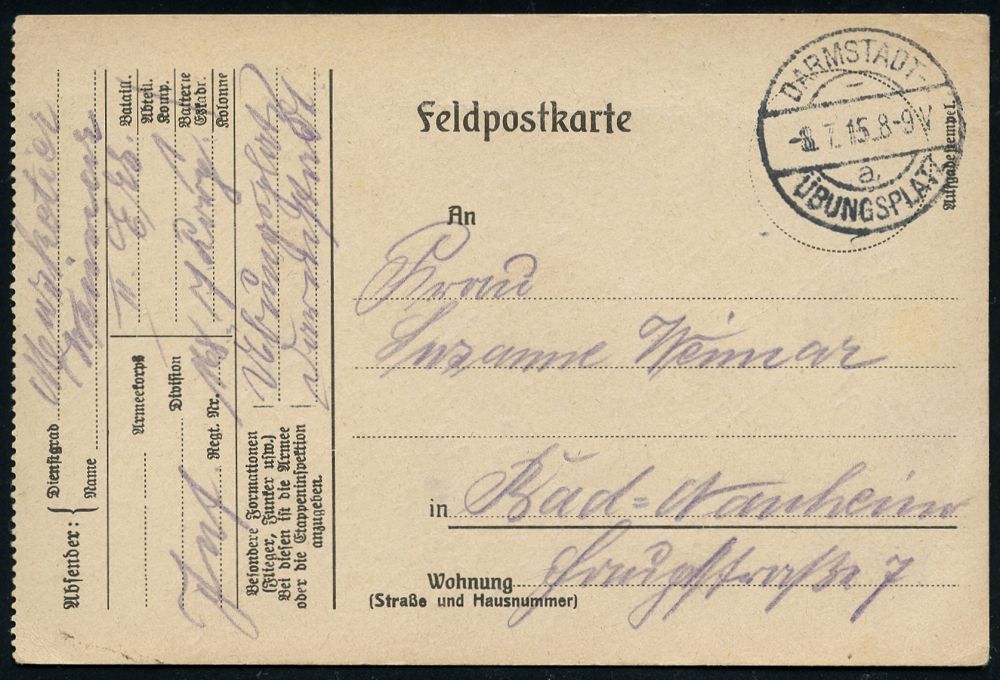 Feldpostkarte
DARMSTADT-
7.15.8-9V
a.
ÜBUNGSPLATZ
Aufgabestempel
An
Frau
Susanne Weimar
in Bad=Nauheim
Wohnung
(Straße und Hausnummer)
Hauptstraße 7
Absender:
Dienstgrad Musketier
Name Weimar
Bataill.
Abteil. II. E/Ers.
Komp.
Batterie
Eskadr.
Kolonne
Armeekorps
Division
Inf. Regt. Nr.
Besondere Formationen
(Flieger, Funker usw.)
Bei diesen ist die Armee
oder die Etappeninspektion
anzugeben.
Übungsplatz
Darmstadt